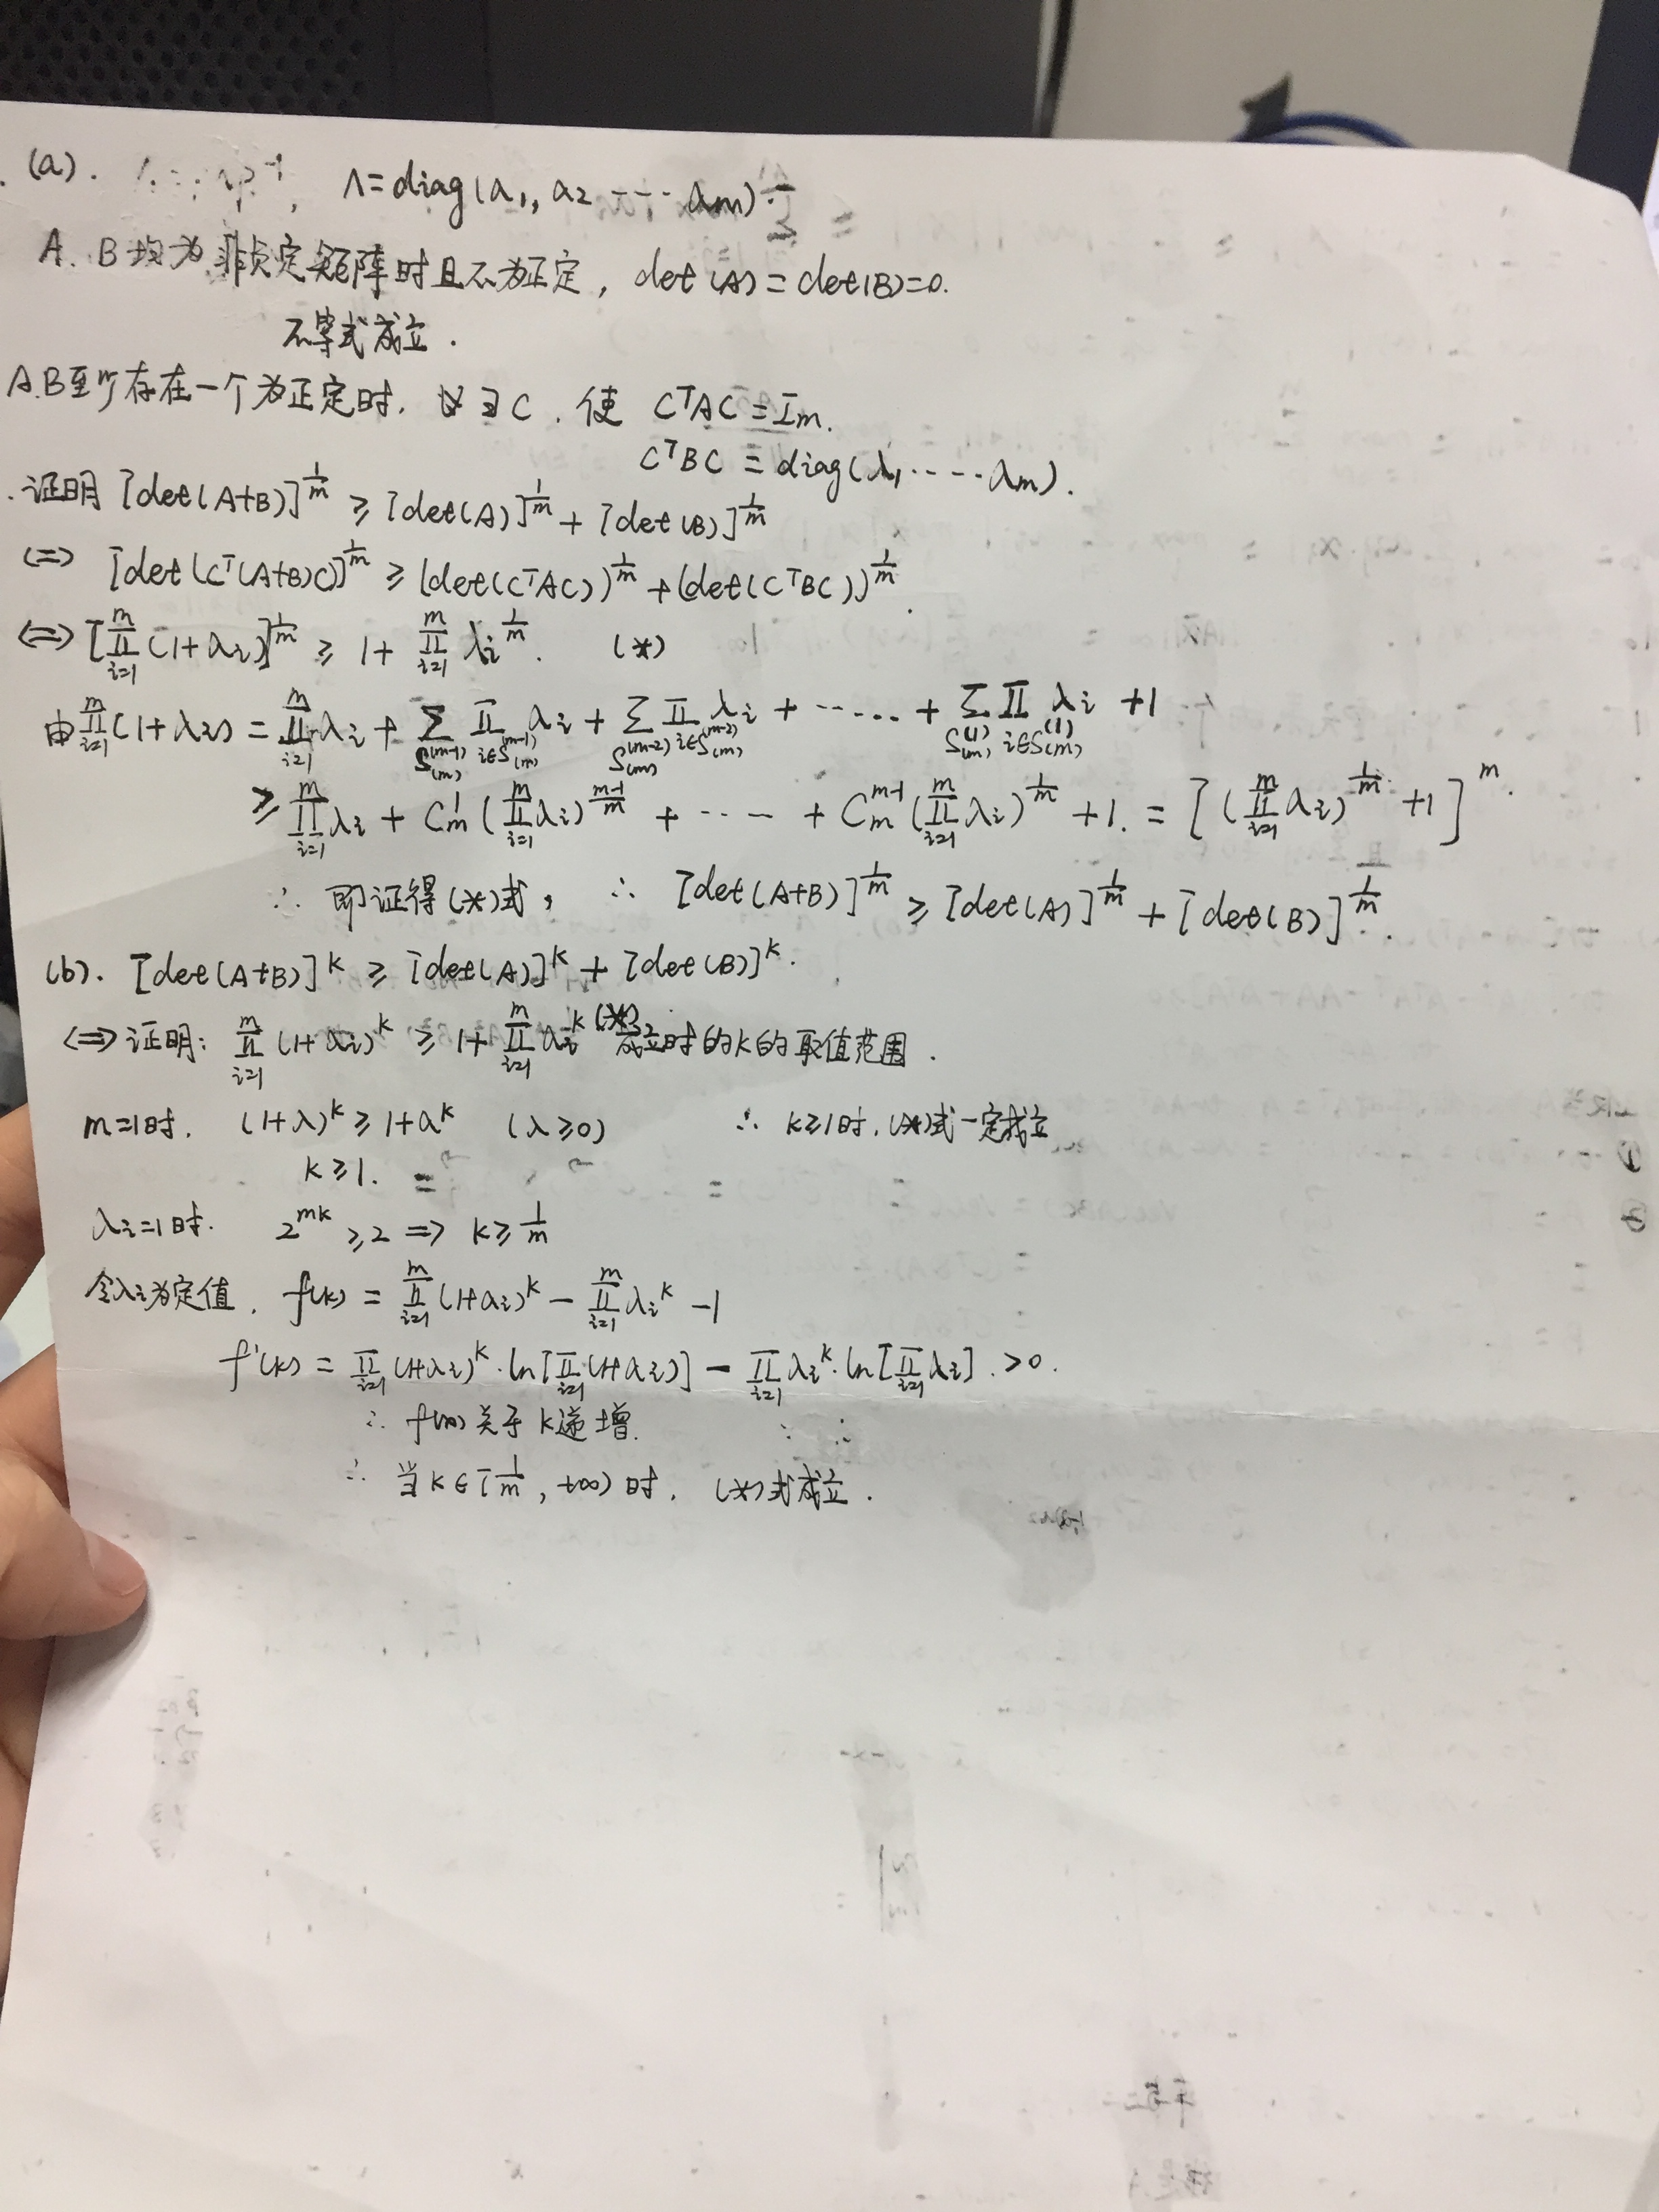 (a). Λ=diag(a₁, a₂ ---- aₘ)
A. B均为非负定矩阵时且不为正定, det(A) = det(B)=0.
不等式成立.
A.B至少存在一个为正定时. ∃ C. 使 CᵀAC = Iₘ.
CᵀBC = diag(λ₁ ----- λₘ).
证明 [det(A+B)]^{1/m} ≥ [det(A)]^{1/m} + [det(B)]^{1/m}
<=> [det(Cᵀ(A+B)C)]^{1/m} ≥ (det(CᵀAC))^{1/m} + (det(CᵀBC))^{1/m}.
<=> [∏_{i=1}^{m}(1+λi)]^{1/m} ≥ 1+ ∏_{i=1}^{m} λi^{1/m}. (*)
由∏_{i=1}^{m}(1+λi) = ∏_{i=1}^{m} λi + ∑_{S_{(m)}^{(m-1)}} ∏_{i∈S_{(m)}^{(m-1)}} λi + ∑_{S_{(m)}^{(m-2)}} ∏_{i∈S_{(m)}^{(m-2)}} λi + ------ + ∑_{S_{(m)}^{(1)}} ∏_{i∈S_{(m)}^{(1)}} λi +1
≥ ∏_{i=1}^{m} λi + C_m^1 (∏_{i=1}^{m} λi)^{(m-1)/m} + ---- + C_m^{m-1} (∏_{i=1}^{m} λi)^{1/m} +1. = [(∏_{i=1}^{m} λi)^{1/m} +1]^m.
∴ 即证得(*)式, ∴ [det(A+B)]^{1/m} ≥ [det(A)]^{1/m} + [det(B)]^{1/m}.
(b). [det(A+B)]^k ≥ [det(A)]^k + [det(B)]^k.
<=> 证明: ∏_{i=1}^{m} (1+λi)^k ≥ 1+ ∏_{i=1}^{m} λi^k (*) 成立时的k的取值范围.
m=1时. (1+λ)^k ≥ 1+λ^k (λ≥0) ∴ k≥1时, (*)式一定成立
k≥1.
λi=1时. 2^{mk} ≥ 2 => k≥ 1/m
令λi为定值. f(k) = ∏_{i=1}^{m} (1+λi)^k - ∏_{i=1}^{m} λi^k -1
f'(k) = ∏_{i=1} (1+λi)^k · ln[∏_{i=1}(1+λi)] - ∏_{i=1} λi^k · ln[∏_{i=1} λi] . >0.
∴ f(k)关于k递增.
∴ 当k∈[1/m, +∞)时, (*)式成立.